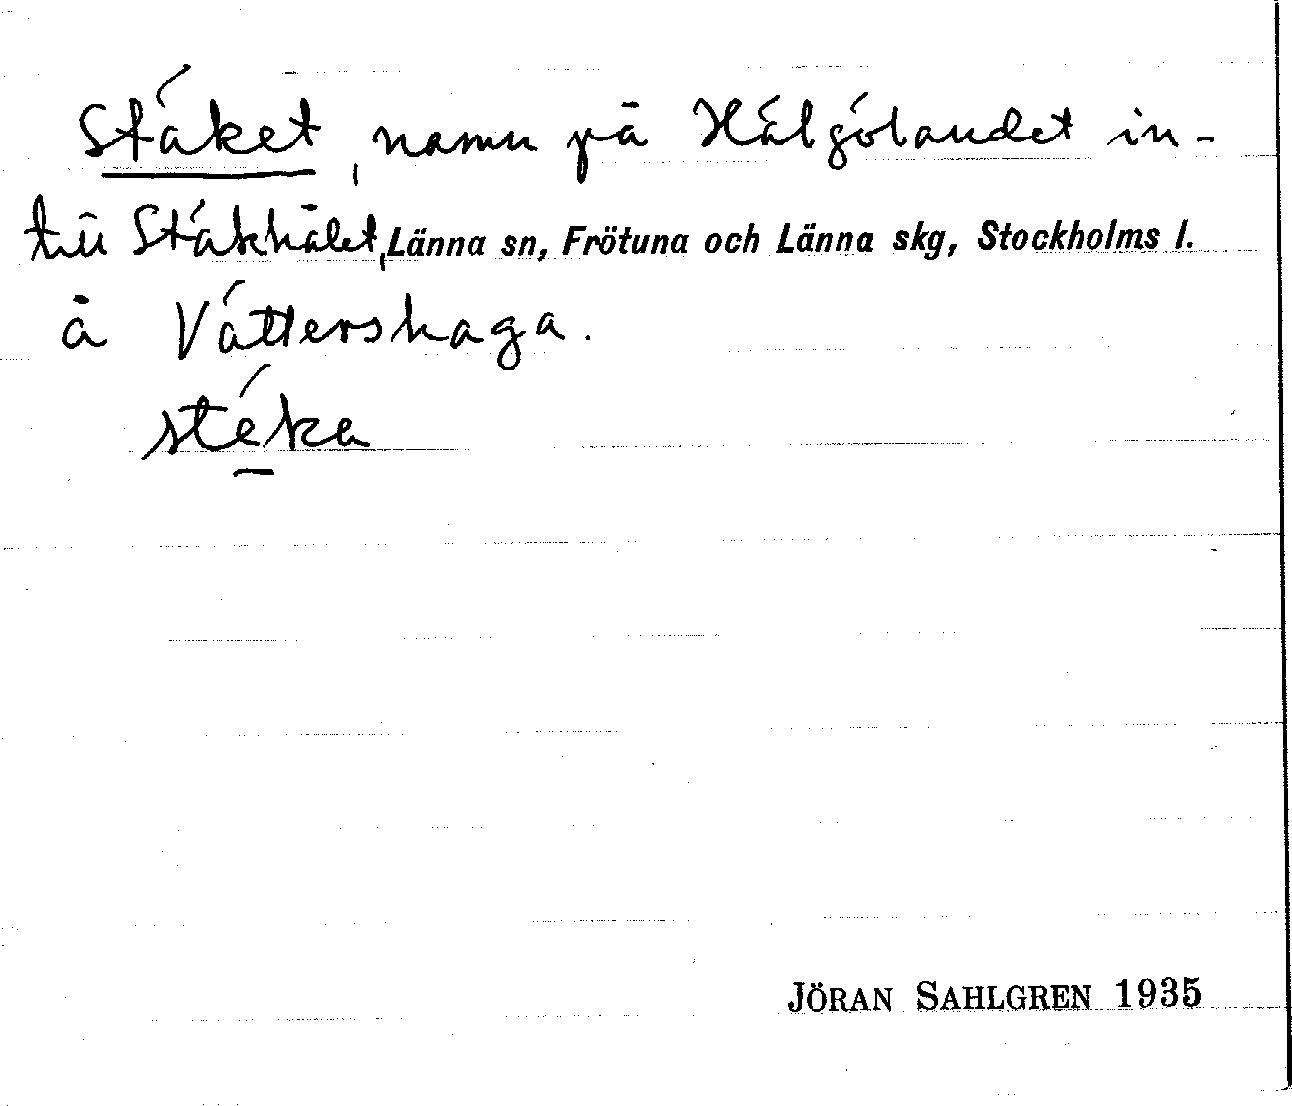 Stäket, namn på Hälgölandet in-
till Stäkhålet, Länna sn, Frötuna och Länna skg, Stockholms l.
å Vättershaga.
stéka
JÖRAN SAHLGREN 1935